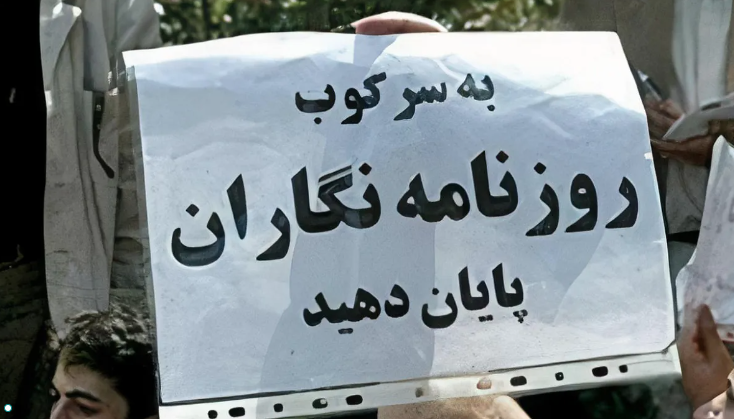 به سر کوب
روزنامه نگاران
پایان دهید